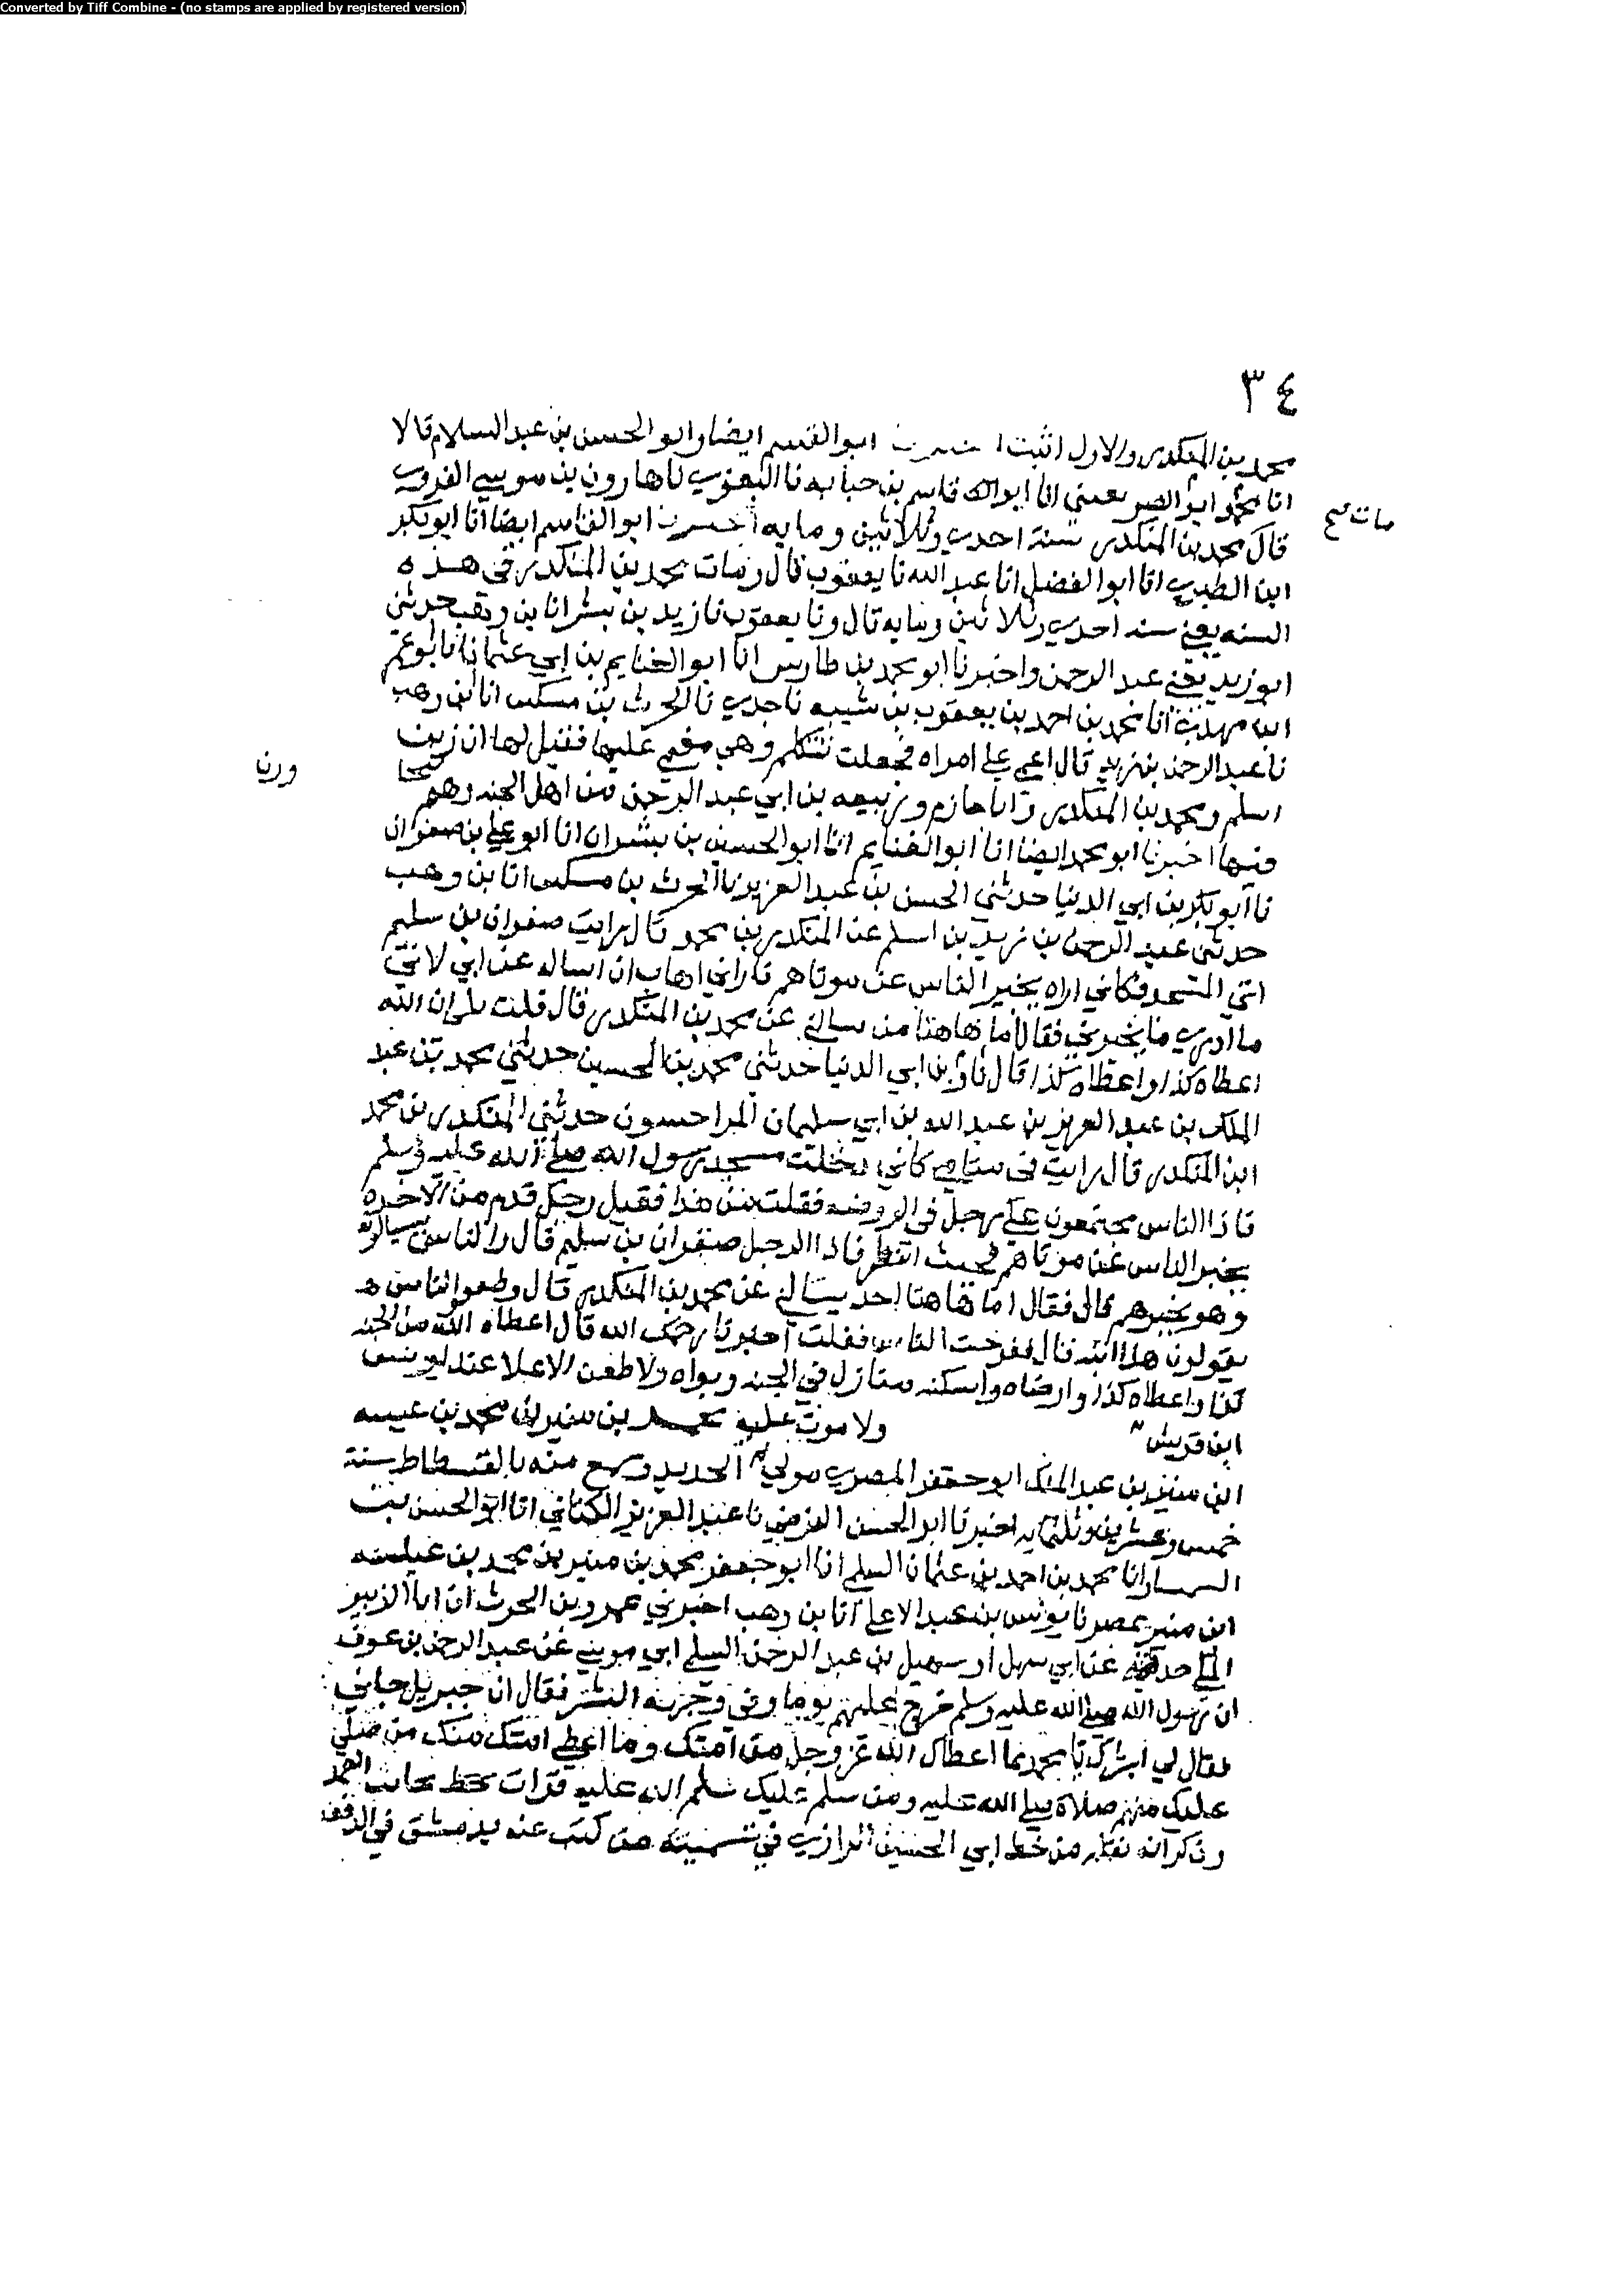 Converted by Tiff Combine - (no stamps are applied by registered version)
٣٤
محمد بن المنكدر والاول اثبت ابو القسم ايضا وابو الحسن بن عبد السلام قالا
انا محمد انا ابو القاسم بن حبابه نا البغوي نا هارون بن موسى الفروي
مات صح
قال محمد بن المنكدر سنة احدى وثلاثين ومايه اخبرنا ابو القاسم ايضا انا ابو بكر
ابن الطبري انا ابو الفضل انا عبد الله نا يعقوب قال ومات محمد بن المنكدر في هذه
السنه يعني سنه احدى وثلاثين ومايه قال ونا يعقوب نا زيد بن بشر انا بن وهب حدثني
ابو زيد يعني عبد الرحمن واخبرنا ابو محمد بن طاوس انا ابو الغنايم بن ابي عثمان انا ابو عمر
ابن مهدي انا محمد بن احمد بن يعقوب بن شيبه نا جدي نا الحرث بن مسكين انا ابن وهب
نا عبد الرحمن بن زيد قال اغمي على امراه فجعلت تتكلم وهي مغمى عليها فقيل لها ان زيد بن
اسلم ومحمد بن المنكدر وابا حازم وربيعه بن ابي عبد الرحمن من اهل الجنه وهم
فيها اخبرنا ابو محمد ايضا انا ابو الغنايم انا ابو الحسين بن بشران انا ابو علي بن صفوان
نا ابو بكر بن ابي الدنيا حدثني الحسن بن عبد العزيز نا الحرث بن مسكين انا بن وهب
حدثني عبد الرحمن بن زيد بن اسلم عن المنكدر بن محمد قال رايت صفوان بن سليم
اتى المسجد فكاني اراه يخبر الناس عن موتاهم فاراني اهاب ان اساله عن ابي لاني
ما ادري ما يخبرني فقال اما هاهنا من يسالني عن محمد بن المنكدر قال قلت بلى ان الله
اعطاه كذا واعطاه كذا قال نا بن ابي الدنيا حدثني محمد بن الحسين حدثني محمد بن عبد
الملك بن عبد العزيز بن عبد الله بن ابي سليمان الماجشون حدثني المنكدر بن محمد
ابن المنكدر قال رايت في منامي كاني دخلت مسجد رسول الله صلى الله عليه وسلم
فاذا الناس مجتمعون على رجل في الروضه فقلت من هذا فقيل رجل قدم من الاخره
يخبر الناس عن موتاهم فجيت انظر فاذا الرجل صفوان بن سليم قال والناس يسالونه
وهو يخبرهم قال فقال اما هاهنا احد يسالني عن محمد بن المنكدر قال وطفق الناس
يقولون هذا ابنه قال ففرجت الناس فقلت اخبرنا رحمك الله قال اعطاه الله من الجنه
كذا واعطاه كذا وارضاه واسكنه منازل في الجنه وبواه ولا ظعن
ولا موت عليه محمد بن منير بن محمد بن عنبسه
ابن قريش
ابن منير بن عبد الملك ابو جعفر المصري مولى الحديد وسمع منه بالفسطاط سنة
خمس وعشرين وثلثمايه اخبرنا ابو الحسن الفرضي نا عبد العزيز الكتاني انا ابو الحسن
السمسار انا محمد بن احمد بن عثمان السلمي انا ابو جعفر محمد بن منير بن محمد بن عنبسه
ابن منير بمصر نا يونس بن عبد الاعلى انا بن وهب اخبرني عمرو بن الحرث ان ابا الزبير
المكي حدثه عن ابي سهل او سهيل بن عبد الرحمن السلمي عن عبد الرحمن بن عوف
ان رسول الله صلى الله عليه وسلم خرج عليهم يوما وفي وجهه البشر فقال ان جبريل جاني
فقال لي ابشرك يا محمد بما اعطاك الله عز وجل من امتك وما اعطى امتك منك من صلى
عليك منهم صلاة صلى الله عليه ومن سلم عليك سلم الله عليه قرات بخط نجا بن احمد
وذكر انه نقله من خط ابي الحسين الرازي في تسميته من كتب عنه بدمشق في الدفعه